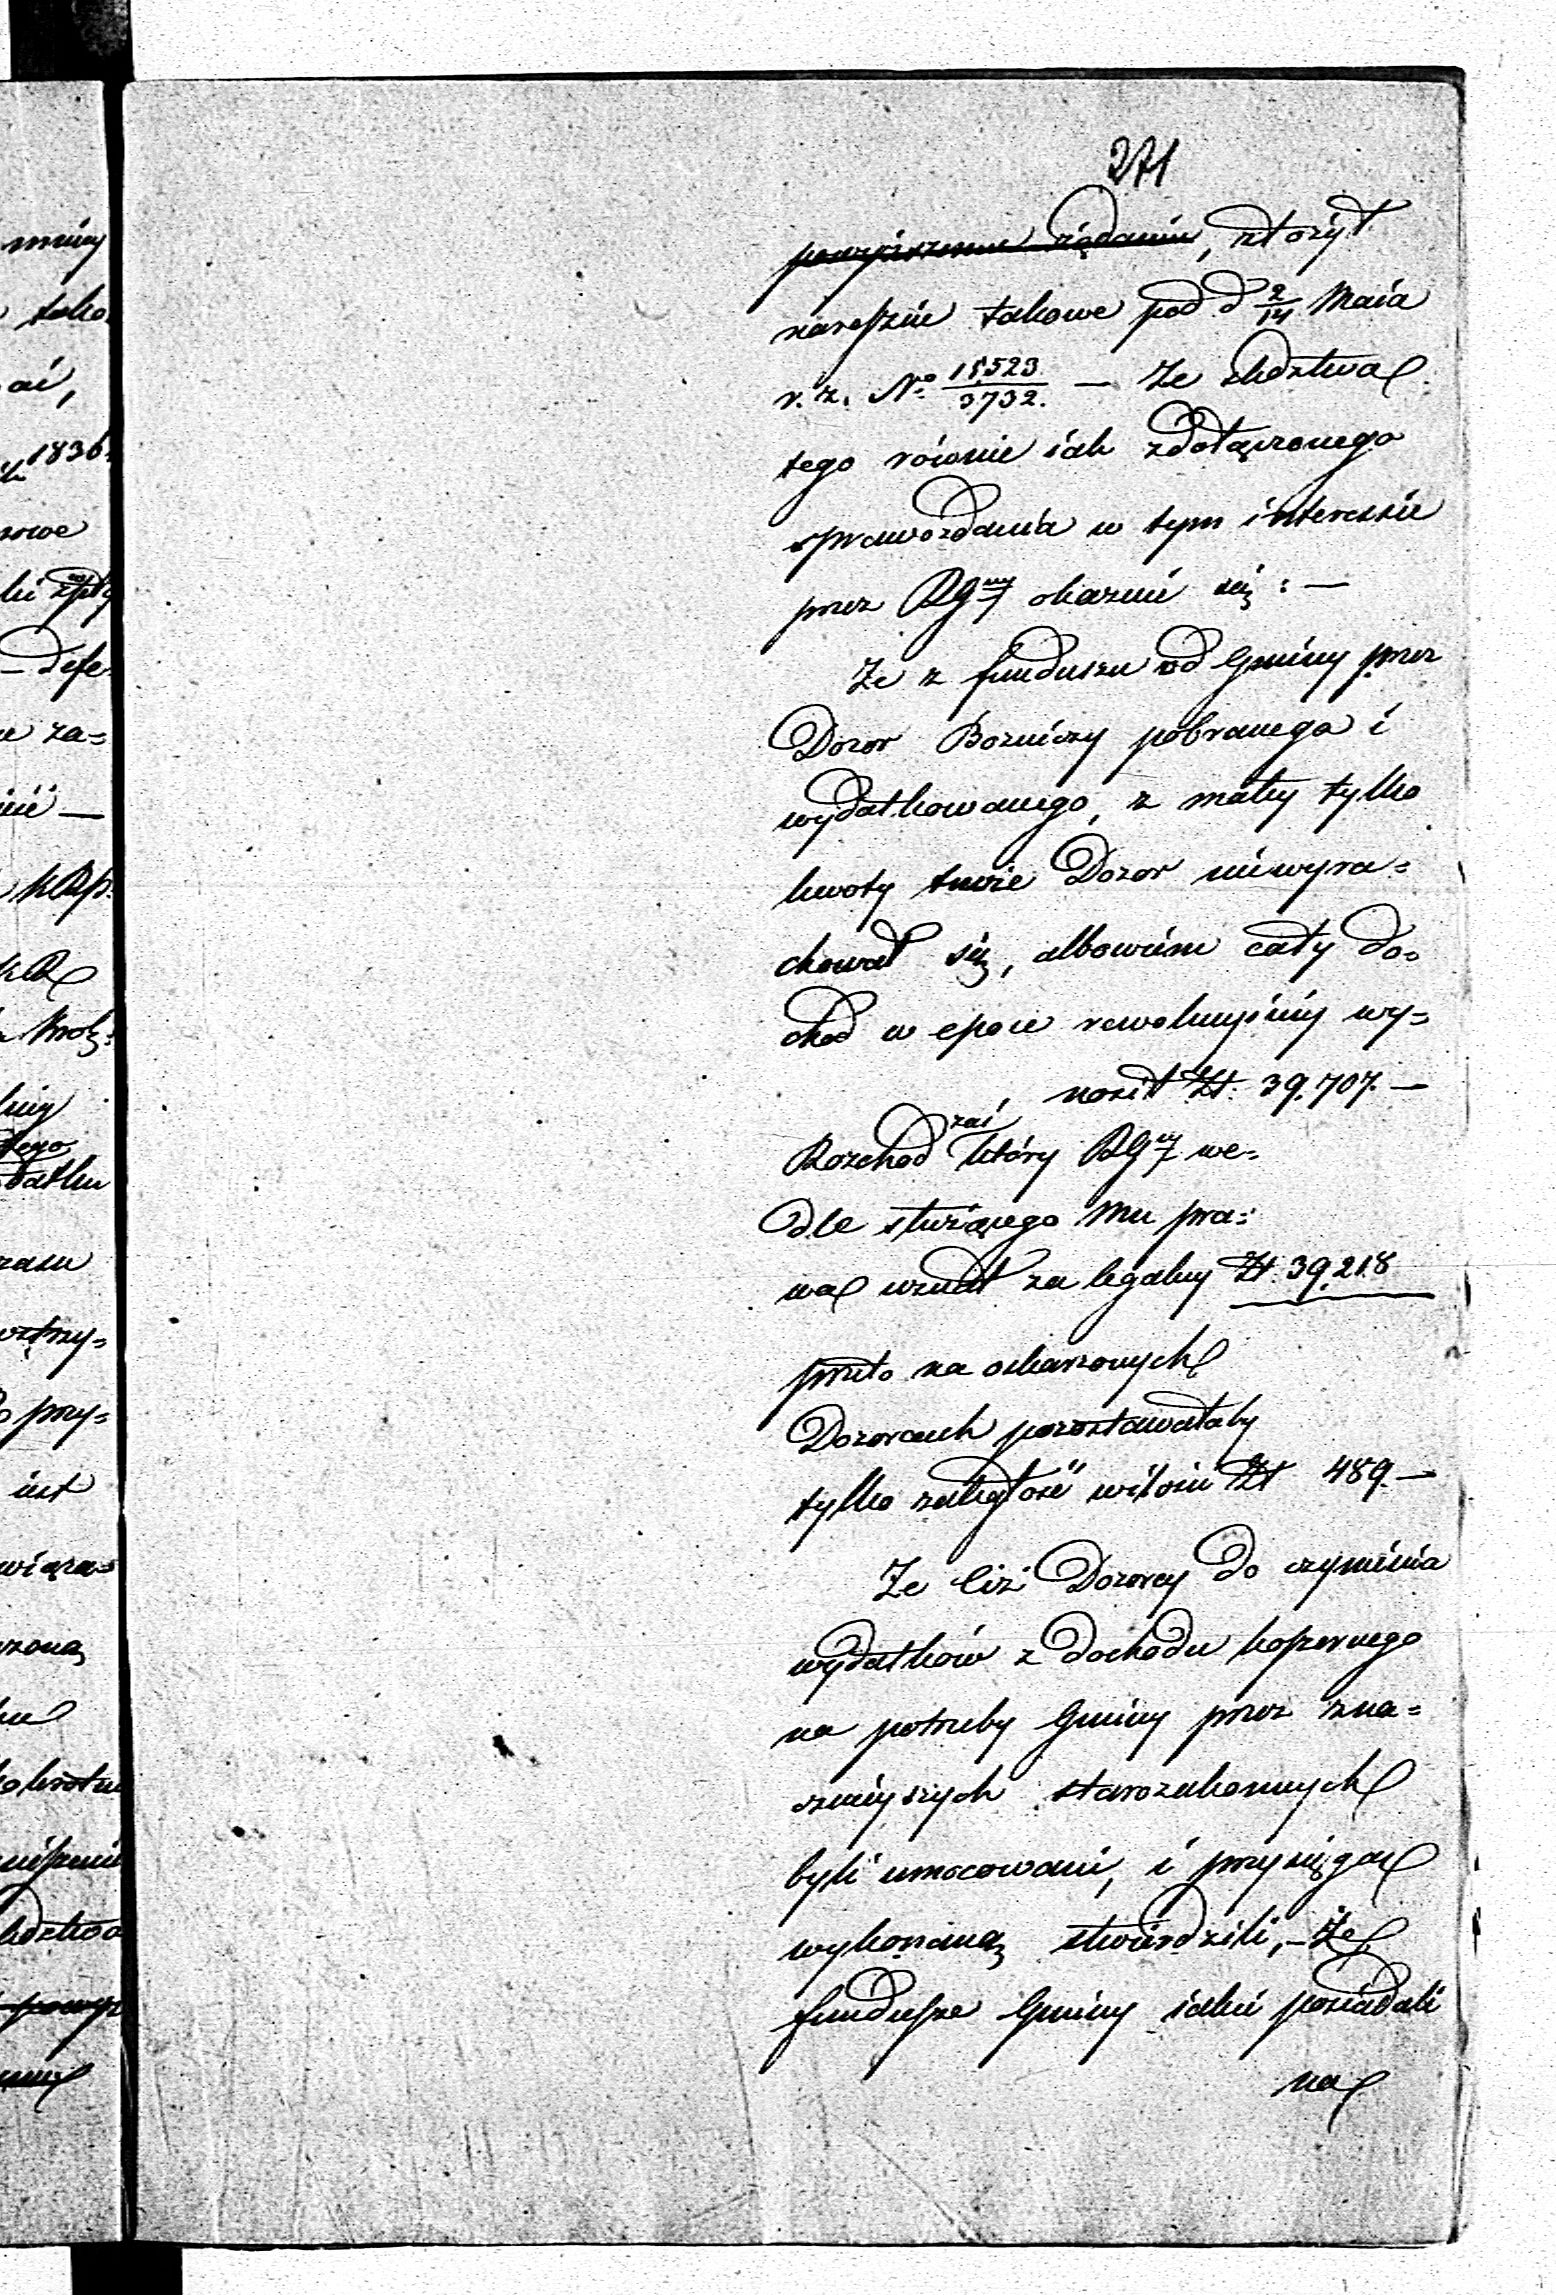 271
powyższemu żądaniu, złożył
nareszcie takowe pod d 2/14 Maia
r. z. No 18523/3732. — Ze śledztwa
tego równie iak z dołączonego
sprawozdania w tym interessie
przez RGny okazuie się: —
Ze z funduszu od Gminy przez
Dozor Bozniczy pobranego i
wydatkowanego, z małey tylko
kwoty tenże Dozor niewyra=
chował się, albowiem cały do=
chod w epoce rewolucyiney wy=
nosił Zł. 39.707. —
Rozchod zaś który RGny we=
dle służącego Mu pra=
wa uznał za legalny Zł. 39.218
przeto na oskarzonych
Dozorcach pozostawałaby
tylko zaległość w ilości Zł 489. —
Ze ciż Dozorcy do czynienia
wydatków z dochodu koszernego
na potrzeby Gminy przez zna=
cznieyszych starozakonnych
byli umocowani, i przysięgą
wykonaną stwierdzili, — że
fundusze Gminy iakie posiadali
na
1836
tako
owe
defe
za=
KRP.
tego
datku
przy=
iest